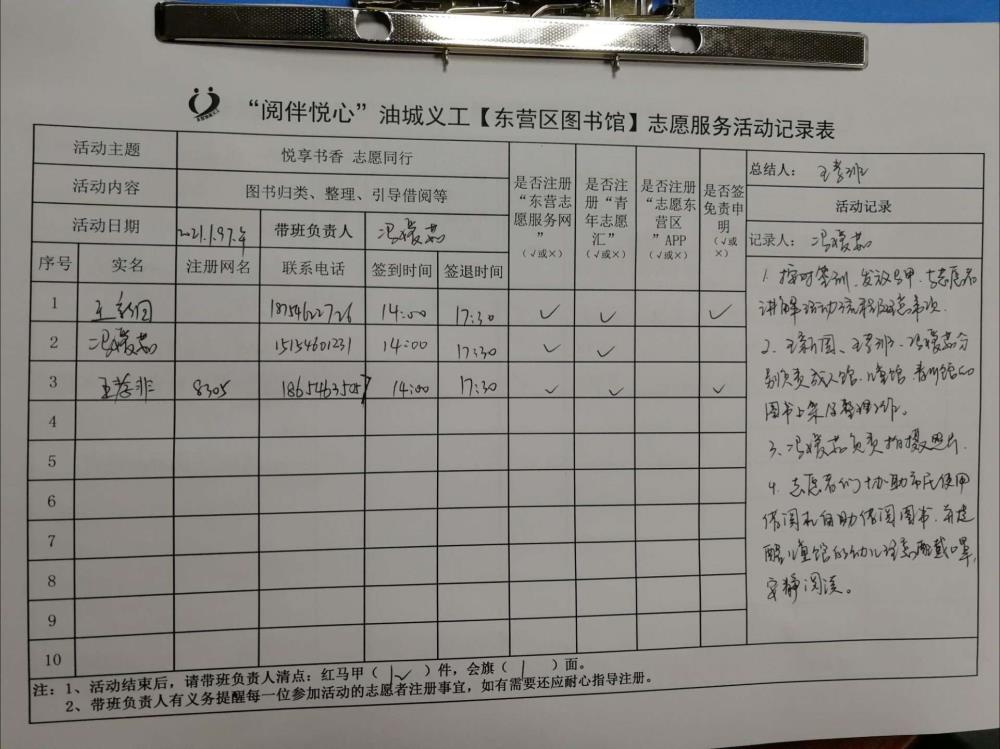 “阅伴悦心”油城义工【东营区图书馆】志愿服务活动记录表
活动主题 悦享书香 志愿同行
活动内容 图书归类、整理、引导借阅等
活动日期 2021.1.9 带班负责人 冯媛茹
序号 实名 注册网名 联系电话 签到时间 签退时间
是否注册“东营志愿服务网”（√或×）
是否注册“青年志愿汇”（√或×）
是否注册“志愿东营区”APP（√或×）
是否签免责申明（√或×）
1 王新园 18754622726 14:00 17:30 √ √ √
2 冯媛茹 15154601231 14:00 17:30 √ √
3 王孝非 8305 18654635057 14:00 17:30 √ √ √
4
5
6
7
8
9
10
总结人： 王孝非
活动记录
记录人： 冯媛茹
1. 按时签到、发放马甲、与志愿者
讲解活动流程及注意事项.
2. 王新园、王孝非、冯媛茹分
别负责成人馆、儿童馆、青州馆的
图书上架及整理工作。
3. 冯媛茹负责拍摄照片.
4. 志愿者们协助市民使用
借阅机自助借阅图书、并提
醒儿童馆的幼儿注意佩戴口罩,
安静阅读。
注：1、活动结束后，请带班负责人清点：红马甲（ 12 ）件，会旗（ 1 ）面。
2、带班负责人有义务提醒每一位参加活动的志愿者注册事宜，如有需要还应耐心指导注册。